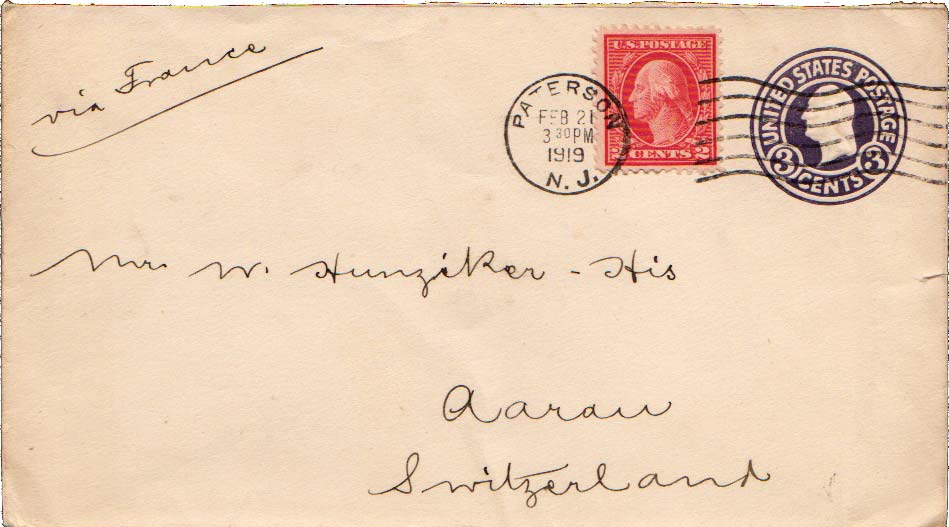 via France
U.S. POSTAGE
2 CENTS 2
PATERSON
FEB 21
3 30 PM
1919
N. J.
UNITED STATES POSTAGE
3 CENTS 3
Mr. W. Hunziker - His
Aarau
Switzerland